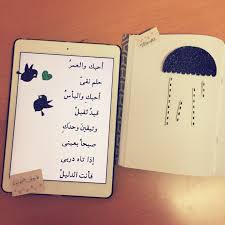 أحبك والعمرُ
حلم نقىٌ
أحبك واليأسُ
قيدٌ ثقيلُ
وتبقينَ وحدكِ
صباحاً بعينى
إذا تاه دربى
فأنتِ الدليلُ